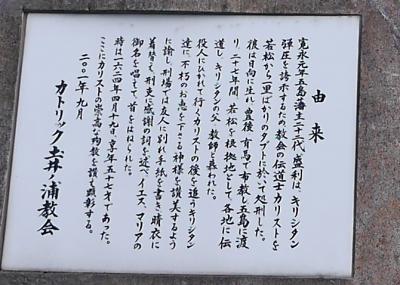 由来
寛永元年五島藩主二十二代盛利は、キリシタン
弾圧を誇示するため教会の伝道士カリストを
若松から一里ばかりのタブトに於いて処刑した。
彼は日向に生れ豊後、有馬で布教し五島に渡
り、二十七年間、若松を根拠地として、各地に伝
道し、キリシタンの父、教師と慕われた。
役人にひかれて行くカリストの後を追うキリシタン
達に不朽のお恵を下さる神様を讃美するよう
に諭し、刑場では友人に別れ手紙を書き晴衣に
着替え刑吏に感謝の詞を述べ、イエス、マリアの
御名を唱えて、首をはねられた。
時は一六二四年四月十九日、享年五十七才であった。
ここにカリストの崇高な殉教を讃え顕彰する。
二〇〇一年九月
カトリック土井ノ浦教会